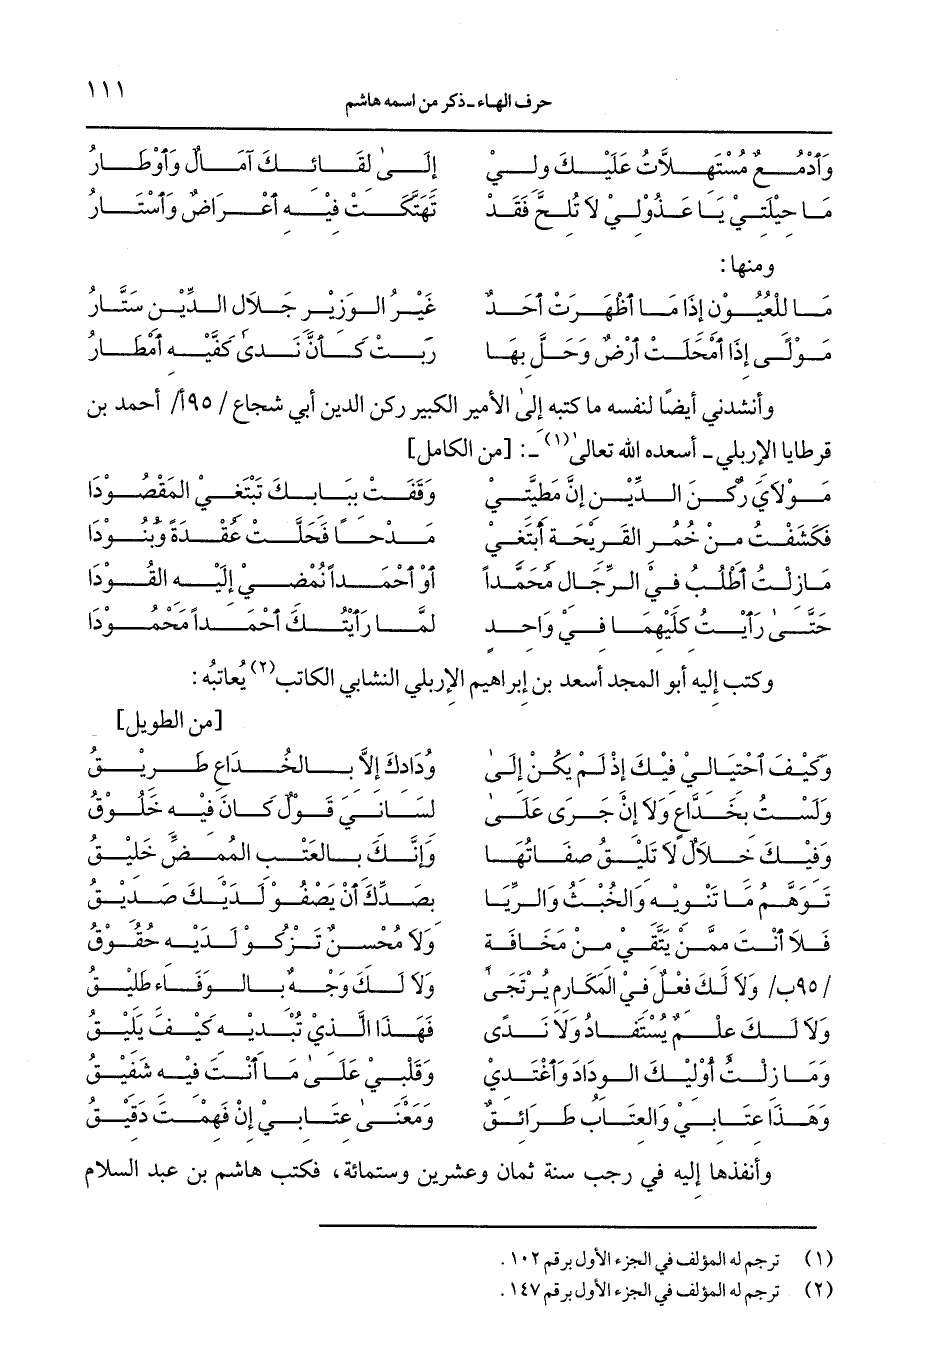 حرف الهاء ـ ذكر من اسمه هاشم ١١١
وَأَدْمُعٌ مُسْتَهِلَّاتٌ عَلَيْكَ وَلِيْ إِلَى لِقَائِكَ آمَالٌ وَأَوْطَارُ
مَا حِيْلَتِيْ يَا عَذُوْلِيْ لَا تُلِحَّ فَقَدْ تَهَتَّكَتْ فِيْهِ أَعْرَاضٌ وَأَسْتَارُ
ومنها:
مَا لِلْعُيُوْنِ إِذَا مَا أَظْهَرَتْ أَحَدٌ غَيْرُ الوَزِيْرِ جَلَالِ الدِّيْنِ سَتَّارُ
مَوْلًى إِذَا أَمْحَلَتْ أَرْضٌ وَحَلَّ بِهَا رَبَتْ كَأَنَّ نَدَى كَفَّيْهِ أَمْطَارُ
وأنشدني أيضًا لنفسه ما كتبه إلى الأمير الكبير ركن الدين أبي شجاع /١٩٥/ أحمد بن
قرطايا الإربلي ـ أسعده الله تعالى(١) ـ: [من الكامل]
مَوْلَايَ رُكْنَ الدِّيْنِ إِنَّ مَطِيَّتِيْ وَقَفَتْ بِبَابِكَ تَبْتَغِيْ المَقْصُوْدَا
فَكَشَفْتُ مِنْ خُمُرِ القَرِيْحَةِ أَبْتَغِيْ مَدْحًا فَحَلَّتْ عُقْدَةً وَبُنُوْدَا
مَا زِلْتُ أَطْلُبُ فِي الرِّجَالِ مُحَمَّدًا أَوْ أَحْمَدًا نُمْضِيْ إِلَيْهِ القُوْدَا
حَتَّى رَأَيْتُ كِلَيْهِمَا فِيْ وَاحِدٍ لَمَّا رَأَيْتُكَ أَحْمَدًا مَحْمُوْدَا
وكتب إليه أبو المجد أسعد بن إبراهيم الإربلي النشابي الكاتب(٢) يُعاتبُه:
[من الطويل]
وَكَيْفَ احْتِيَالِيْ فِيْكَ إِذْ لَمْ يَكُنْ إِلَى وُدَادِكَ إِلَّا بِالخُدَاعِ طَرِيْقُ
وَلَسْتُ بِخَدَّاعٍ وَلَا إِنْ جَرَى عَلَى لِسَانِيَ قَوْلٌ كَانَ فِيْهِ خَلُوْقُ
وَفِيْكَ خِلَالٌ لَا تَلِيْقُ صِفَاتُهَا وَإِنَّكَ بِالعَتْبِ المُمِضِّ خَلِيْقُ
تَوَهُّمُ مَا تَنْوِيْهِ وَالخُبْثُ وَالرِّيَا بِصَدِّكَ أَنْ يَصْفُوْ لَدَيْكَ صَدِيْقُ
فَلَا أَنْتَ مِمَّنْ يَتَّقِيْ مِنْ مَخَافَةٍ وَلَا مُحْسِنٌ تَزْكُوْ لَدَيْهِ حُقُوْقُ
/٩٥ب/ وَلَا لَكَ فِعْلٌ فِي المَكَارِمِ يُرْتَجَى وَلَا لَكَ وَجْهٌ بِالوَفَاءِ طَلِيْقُ
وَلَا لَكَ عِلْمٌ يُسْتَفَادُ وَلَا نَدًى فَهَذَا الَّذِيْ تُبْدِيْهِ كَيْفَ يَلِيْقُ
وَمَا زِلْتُ أُوْلِيْكَ الوِدَادَ وَأَغْتَدِيْ وَقَلْبِيْ عَلَى مَا أَنْتَ فِيْهِ شَفِيْقُ
وَهَذَا عِتَابِيْ وَالعِتَابُ طَرَائِقٌ وَمَعْنَى عِتَابِيْ إِنْ فَهِمْتَ دَقِيْقُ
وأنفذها إليه في رجب سنة ثمان وعشرين وستمائة، فكتب هاشم بن عبد السلام
(١) ترجم له المؤلف في الجزء الأول برقم ١٠٢.
(٢) ترجم له المؤلف في الجزء الأول برقم ١٤٧.